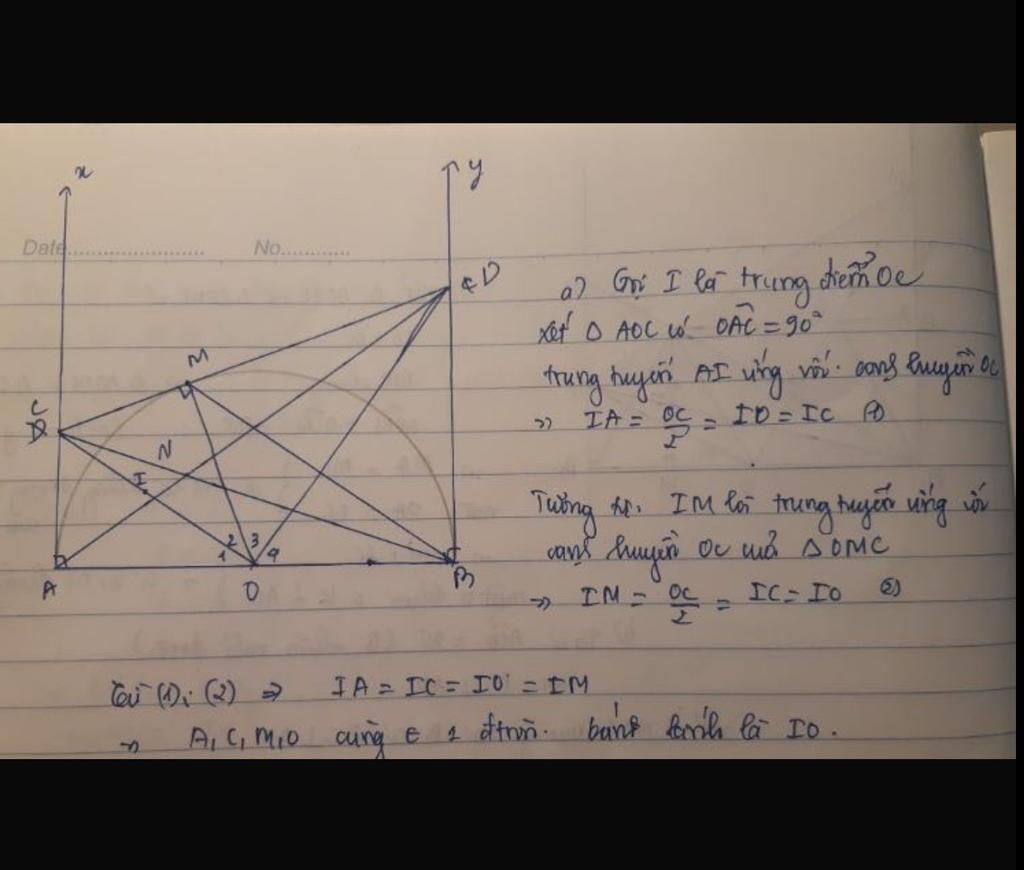 x
y
Date
No
D
M
C
N
I
2 3
1 4
A
O
B
a) Gọi I là trung điểm OC
xét Δ AOC có OAC = 90°
trung tuyến AI ứng với cạnh huyền OC
=> IA = OC/2 = IO = IC (1)
Tương tự. IM là trung tuyến ứng với
cạnh huyền OC của Δ OMC
=> IM = OC/2 = IC = IO (2)
Từ (1); (2) => IA = IC = IO = IM
=> A, C, M, O cùng ∈ 1 đtròn. bánh kính là IO.